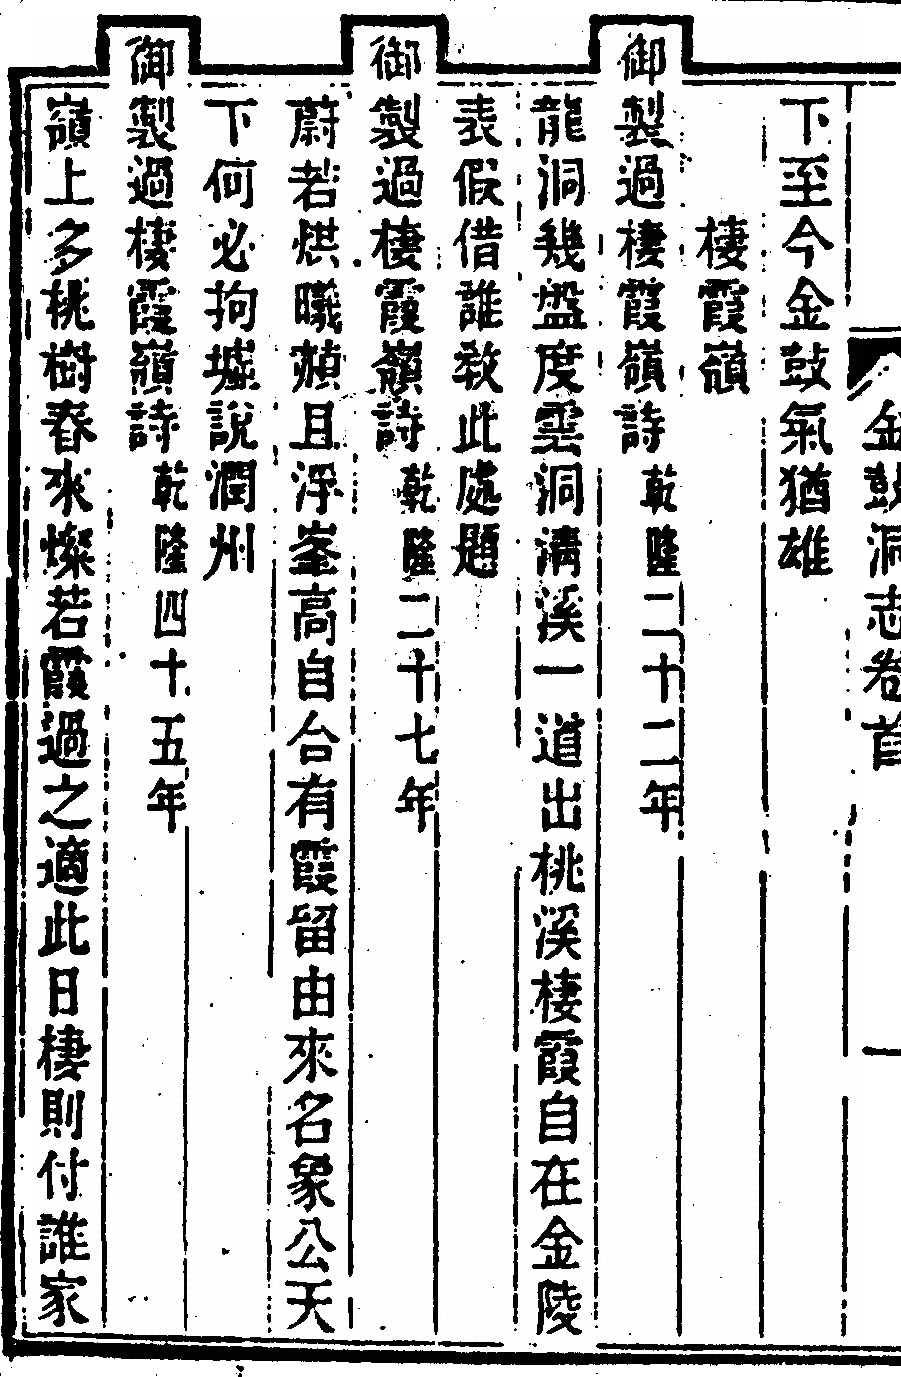 金鼓洞志卷首
一
下至今金鼓氣猶雄
棲霞嶺
御製過棲霞嶺詩乾隆二十二年
龍洞幾盤度雲洞溝溪一道出桃溪棲霞自在金陵
表假借誰教此處題
御製過棲霞嶺詩乾隆二十七年
蔚若烘曦赬且浮峯高自合有霞留由來名象公天
下何必拘墟說潤州
御製過棲霞嶺詩乾隆四十五年
嶺上多桃樹春來燦若霞過之適此日棲則付誰家